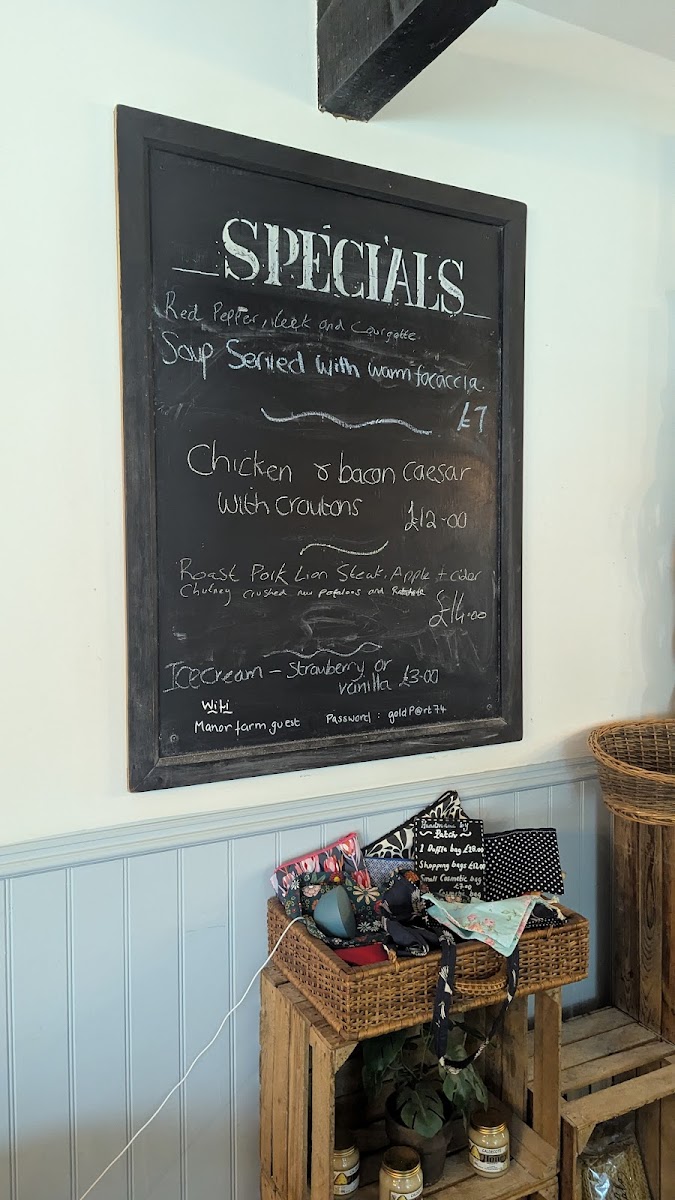 SPECIALS
Red Pepper, leek and Courgette.
Soup Served with warm focaccia.
£7
Chicken & bacon caesar
with croutons £12-00
Roast Pork Lion Steak. Apple + cider
Chutney crushed new potatoes and
£14-00
Icecream - Strawberry or
vanilla £3-00
Wifi
Manor farm guest Password : goldP@rt74
Handmade by
Patch
1 Duffle bag £28.00
Shopping bags £12.00
Small Cosmetic bag
£7.00
Cosmetic bag